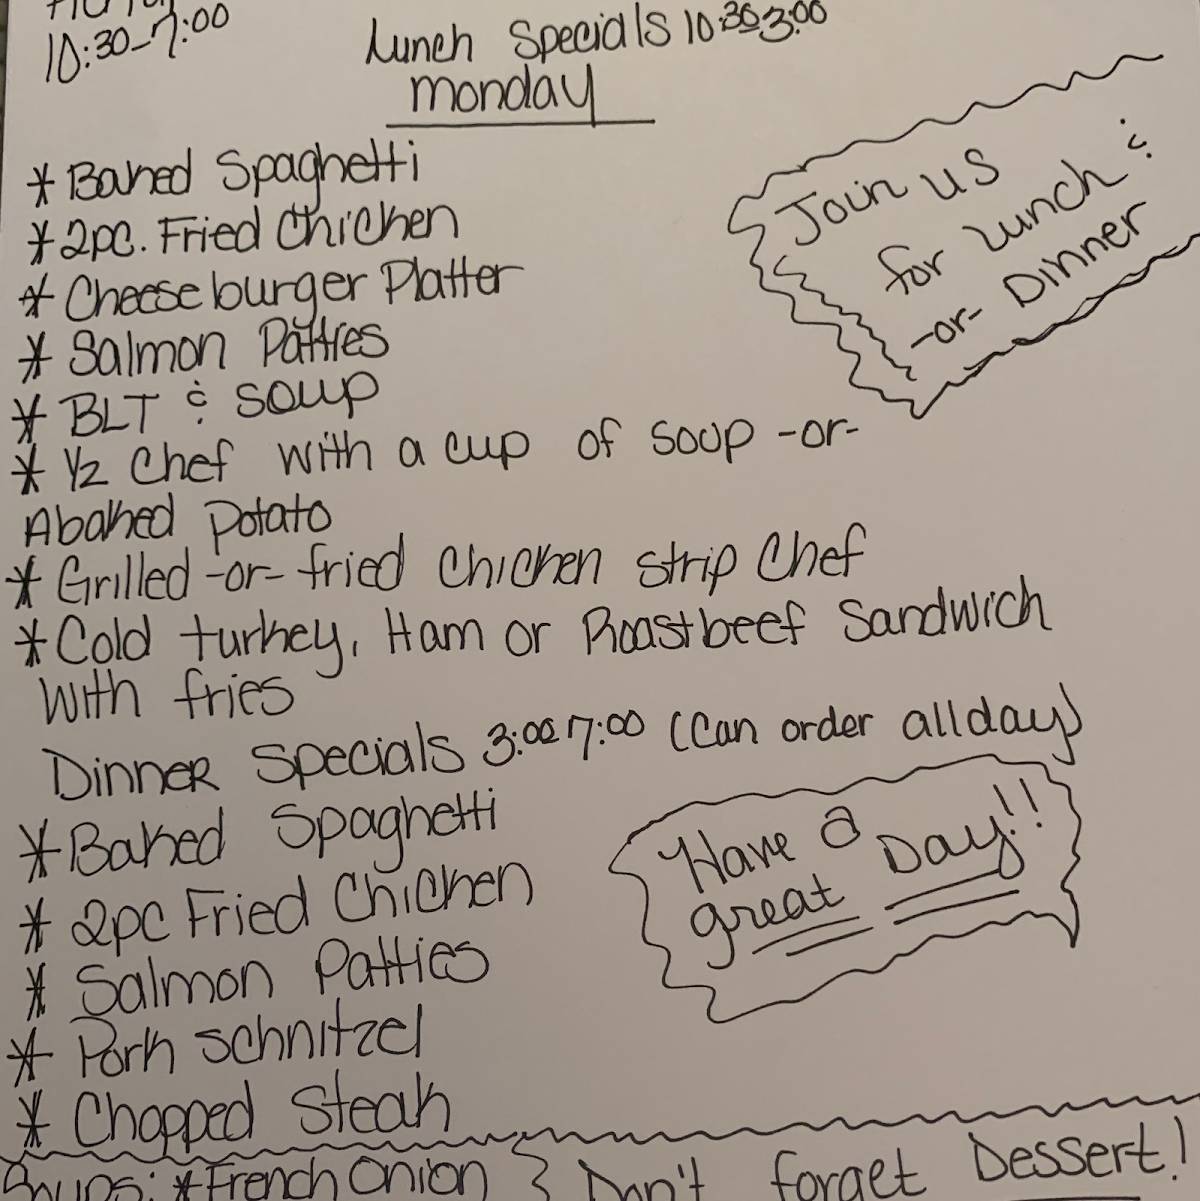 10:30-7:00
Lunch Specials 10:30-3:00
monday
* Baked Spaghetti
* 2pc. Fried Chicken
* Cheeseburger Platter
* Salmon Patties
* BLT & soup
* 1/2 Chef with a cup of soup -or-
A baked potato
* Grilled -or- fried chicken strip Chef
* Cold turkey, Ham or Roastbeef Sandwich
with fries
Join us
for Lunch &
-or- Dinner
Dinner Specials 3:00-7:00 (Can order all day)
* Baked Spaghetti
* 2pc Fried Chicken
* Salmon Patties
* Pork schnitzel
* Chopped Steak
Have a
great Day!!
Soups: * French Onion
Don't forget Dessert!